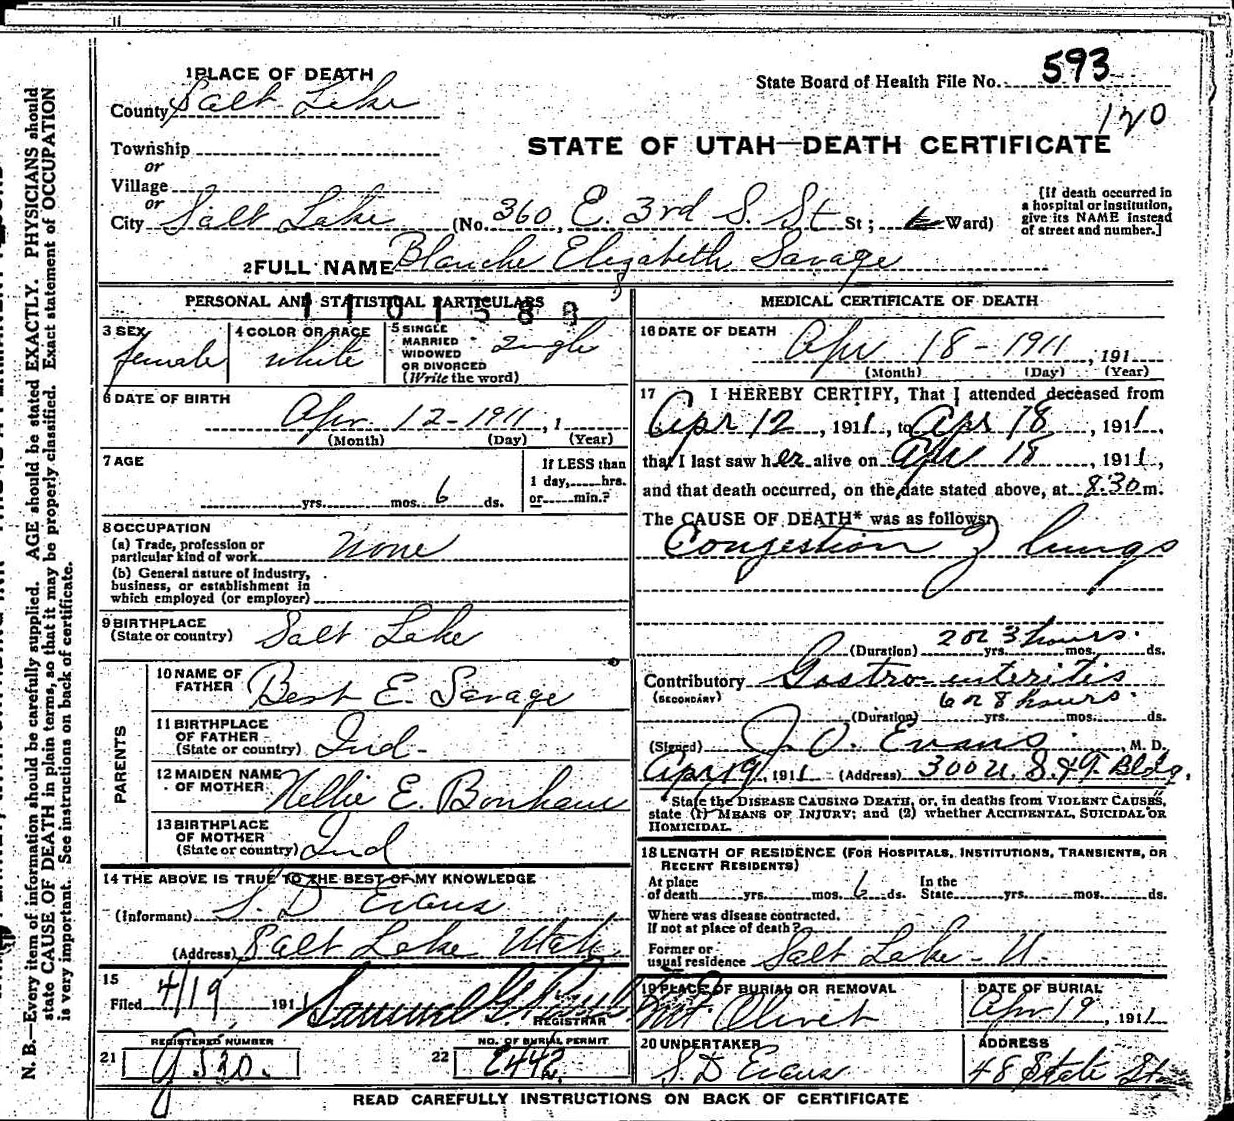 1 PLACE OF DEATH
County Salt Lake
State Board of Health File No. 593
120
Township
or
Village
or
STATE OF UTAH—DEATH CERTIFICATE
City Salt Lake (No. 360, E. 3rd S. St St; Ward)
[If death occurred in
a hospital or institution,
give its NAME instead
of street and number.]
2 FULL NAME Blanche Elizabeth Savage
PERSONAL AND STATISTICAL PARTICULARS
3 SEX
female
4 COLOR OR RACE
white
5 SINGLE
MARRIED
WIDOWED
OR DIVORCED
(Write the word)
Single
6 DATE OF BIRTH
Apr 12-1911, 1
(Month) (Day) (Year)
7 AGE
yrs. mos. 6 ds.
If LESS than
1 day, hrs.
or min.?
8 OCCUPATION
(a) Trade, profession or
particular kind of work None
(b) General nature of industry,
business, or establishment in
which employed (or employer)
9 BIRTHPLACE
(State or country) Salt Lake
PARENTS
10 NAME OF
FATHER Bert E. Savage
11 BIRTHPLACE
OF FATHER
(State or country) Ind-
12 MAIDEN NAME
OF MOTHER Nellie E. Bonham
13 BIRTHPLACE
OF MOTHER
(State or country) Ind
14 THE ABOVE IS TRUE TO THE BEST OF MY KNOWLEDGE
(Informant) S. D Evans
(Address) Salt Lake Utah
15
Filed 4/19, 1911 Samuel G.
REGISTRAR
REGISTERED NUMBER
21
NO. OF BURIAL PERMIT
22 2442
MEDICAL CERTIFICATE OF DEATH
16 DATE OF DEATH
Apr 18-1911, 191
(Month) (Day) (Year)
17 I HEREBY CERTIFY, That I attended deceased from
Apr 12, 1911, to Apr 18, 1911,
that I last saw her alive on Apr 18, 1911,
and that death occurred, on the date stated above, at 8.30 m.
The CAUSE OF DEATH* was as follows:
Congestion of lungs
2 or 3 hours.
(Duration) yrs. mos. ds.
Contributory Gastro-interitis
(SECONDARY)
6 or 8 hours.
(Duration) yrs. mos. ds.
(Signed) J. O. Evans, M. D.
Apr 19, 1911 (Address) 300 U. S. Bldg.
*State the DISEASE CAUSING DEATH, or, in deaths from VIOLENT CAUSES,
state (1) MEANS OF INJURY; and (2) whether ACCIDENTAL, SUICIDAL OR
HOMICIDAL.
18 LENGTH OF RESIDENCE (FOR HOSPITALS, INSTITUTIONS, TRANSIENTS, OR
RECENT RESIDENTS)
At place
of death yrs. mos. 6 ds.
In the
State yrs. mos. ds.
Where was disease contracted.
If not at place of death?
Former or
usual residence Salt Lake - U.
19 PLACE OF BURIAL OR REMOVAL
Mt Olivet
DATE OF BURIAL
Apr 19, 1911
20 UNDERTAKER
S. D Evans
ADDRESS
48 State St
READ CAREFULLY INSTRUCTIONS ON BACK OF CERTIFICATE
N. B.—Every item of information should be carefully supplied. AGE should be stated EXACTLY. PHYSICIANS should
state CAUSE OF DEATH in plain terms, so that it may be properly classified. Exact statement of OCCUPATION
is very important. See instructions on back of certificate.